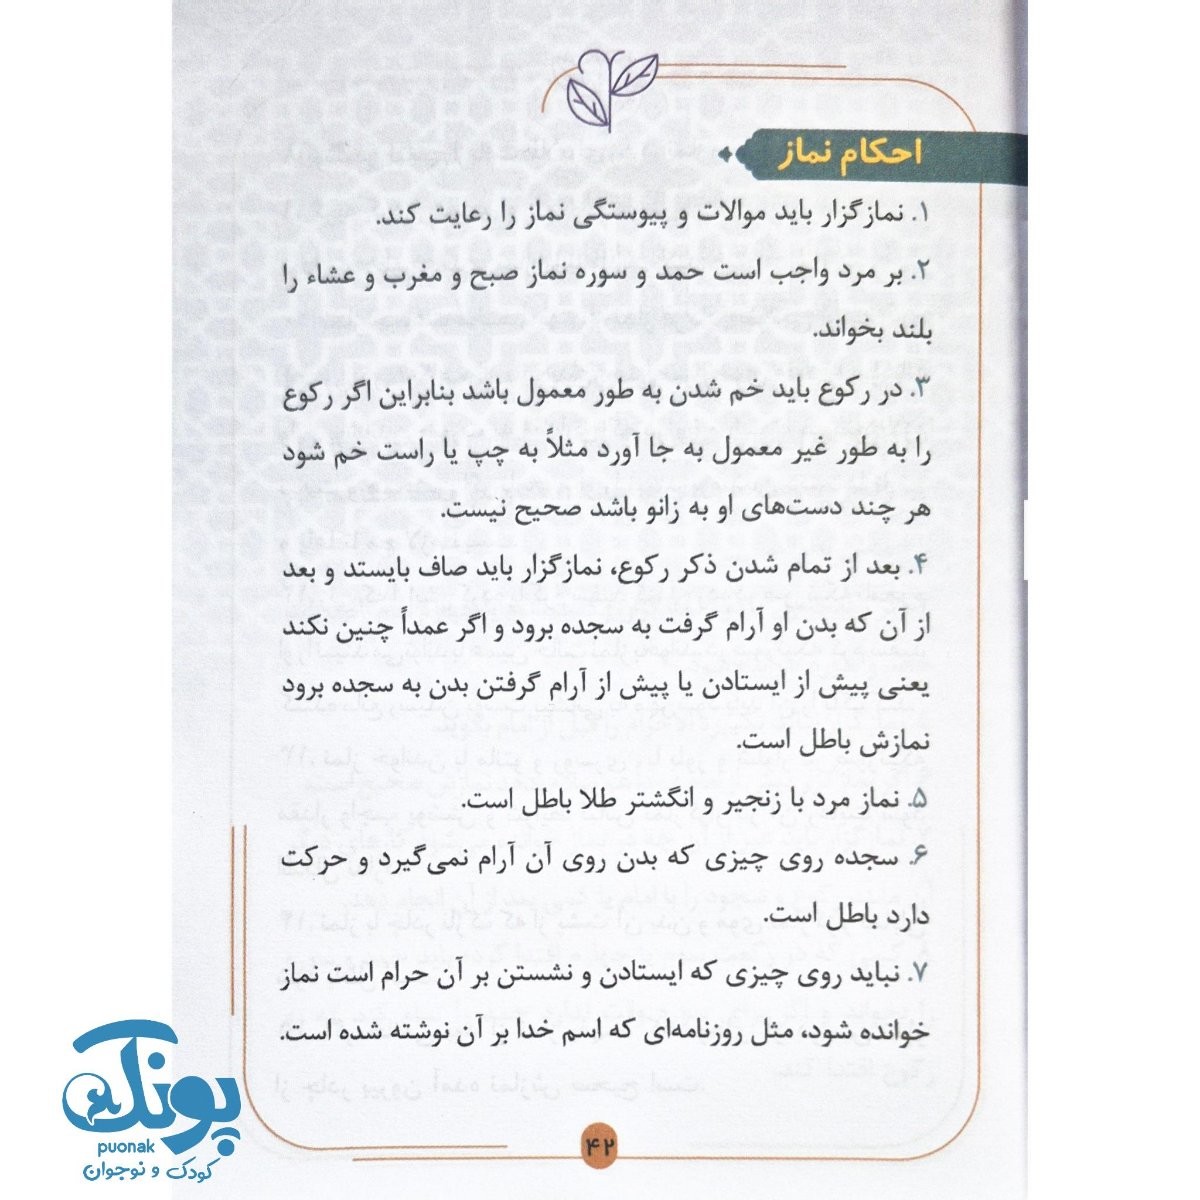 احکام نماز
۱. نمازگزار باید موالات و پیوستگی نماز را رعایت کند.
۲. بر مرد واجب است حمد و سوره نماز صبح و مغرب و عشاء را
بلند بخواند.
۳. در رکوع باید خم شدن به طور معمول باشد بنابراین اگر رکوع
را به طور غیر معمول به جا آورد مثلاً به چپ یا راست خم شود
هر چند دست‌های او به زانو باشد صحیح نیست.
۴. بعد از تمام شدن ذکر رکوع، نمازگزار باید صاف بایستد و بعد
از آن که بدن او آرام گرفت به سجده برود و اگر عمداً چنین نکند
یعنی پیش از ایستادن یا پیش از آرام گرفتن بدن به سجده برود
نمازش باطل است.
۵. نماز مرد با زنجیر و انگشتر طلا باطل است.
۶. سجده روی چیزی که بدن روی آن آرام نمی‌گیرد و حرکت
دارد باطل است.
۷. نباید روی چیزی که ایستادن و نشستن بر آن حرام است نماز
خوانده شود، مثل روزنامه‌ای که اسم خدا بر آن نوشته شده است.
۴۲
پونک
puonak
کودک و نوجوان